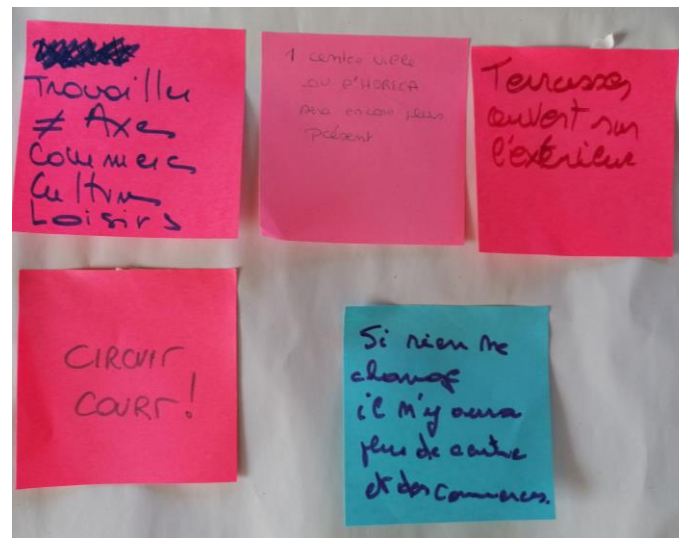 Travailler
≠ Axes
Commerces
Culture
Loisirs
1 centre ville
où l'HORECA
sera encore plus
présent
Terrasses
ouvert sur
l'extérieur
CIRCUIT
COURT!
Si rien ne
change
il n'y aura
plus de centre
et des commerces.